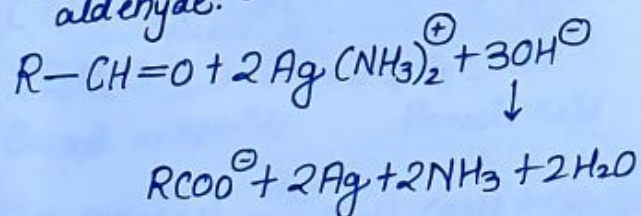 aldehyde.
R-CH=O + 2Ag(NH3)2⊕ + 3OH⊖
↓
RCOO⊖ + 2Ag + 2NH3 + 2H2O